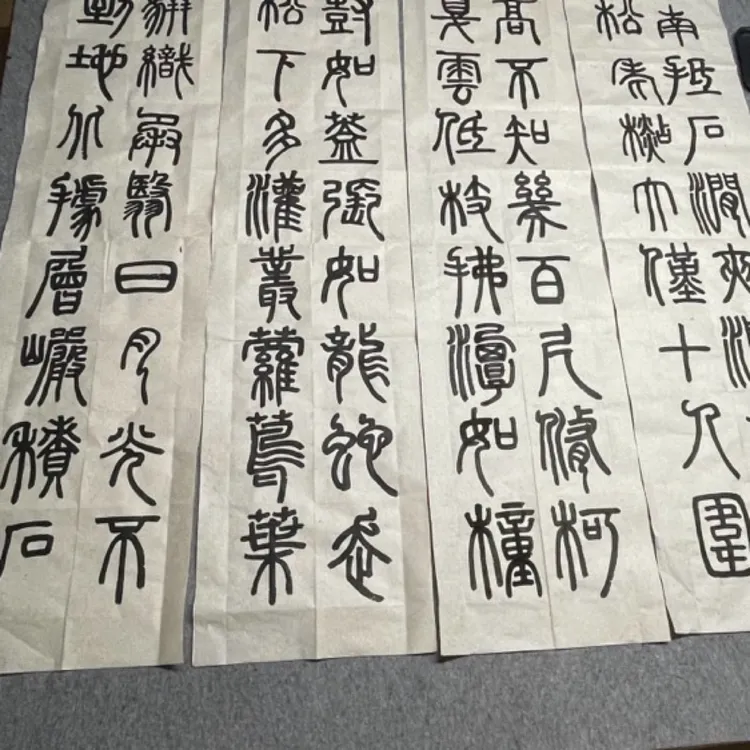 南抵石澗夾澗
松老杉大僅十人圍
高不知幾百尺脩柯
戛雲低枝拂潭如幢
豎如蓋張如龍蛇走
松下多灌叢蘿蔦葉
駢織承翳日月光不
到地北據層巖積石